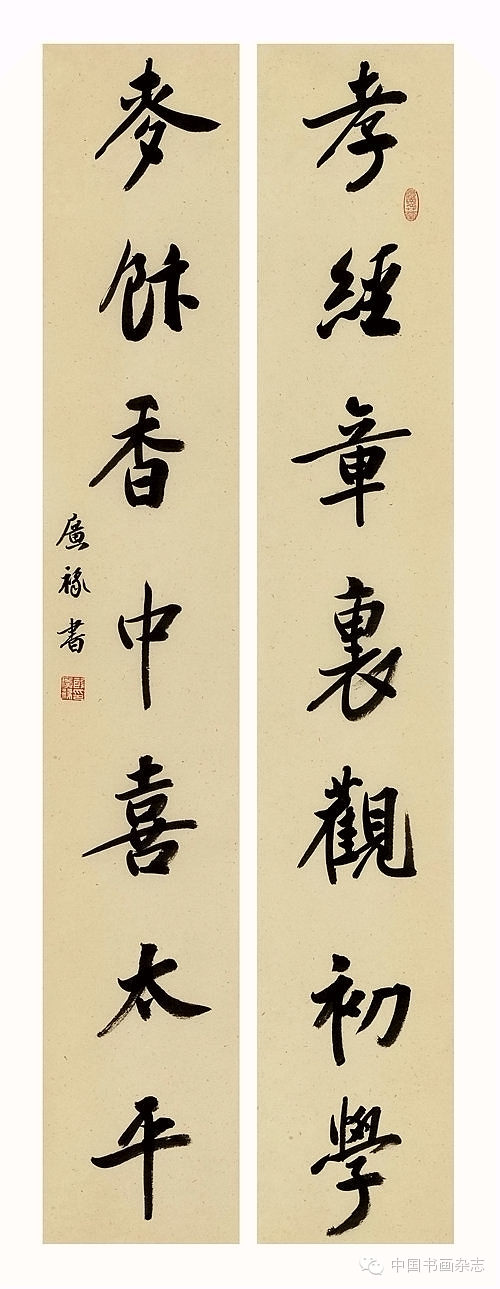 孝經章裏觀初學
麥飰香中喜太平
廣祿書
中国书画杂志